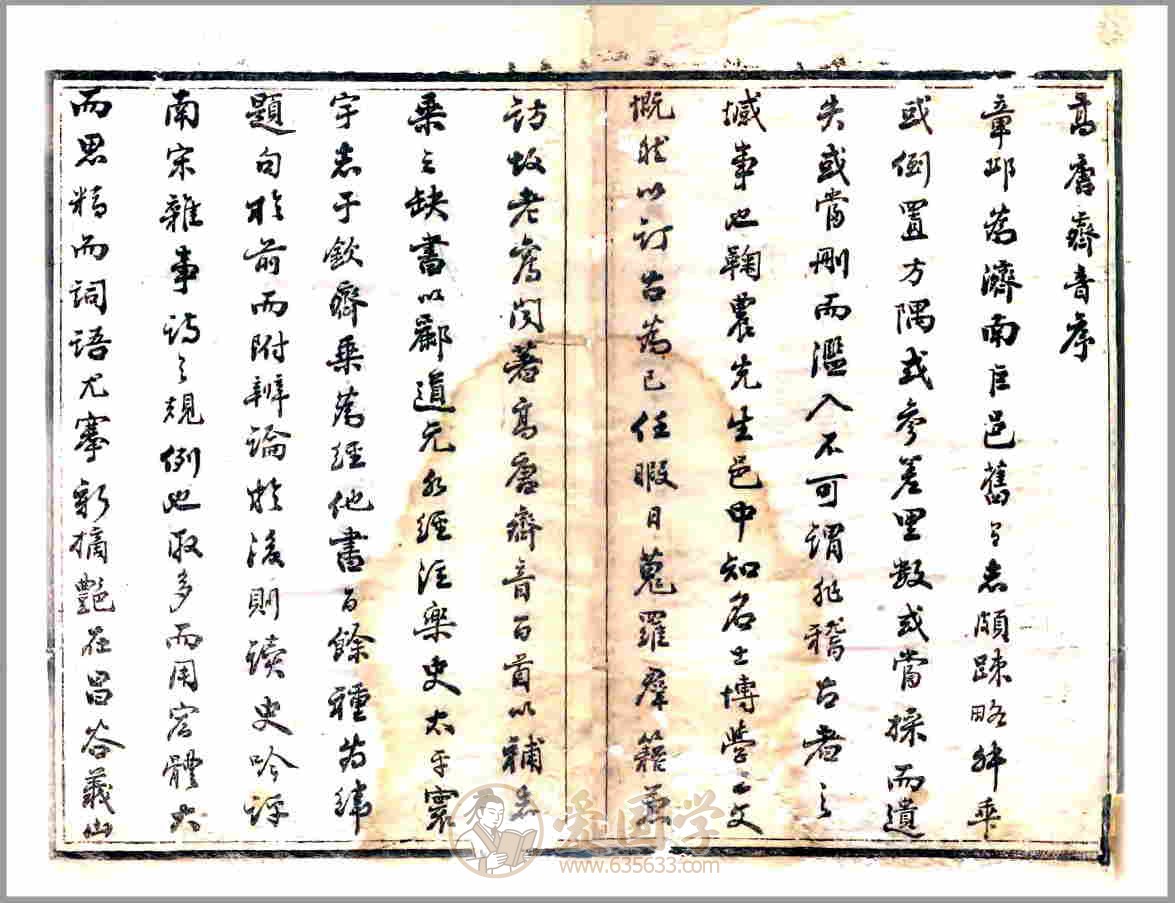 高唐齊音序
章邱為濟南巨邑舊有志頗踈略舛乖
或倒置方隅或參差里數或當採而遺
失或當刪而濫入不可謂非稽古者之
憾事也鞠農先生邑中知名士博學工文
慨然以訂古為己任暇日蒐羅羣籍兼
訪故老舊聞著高唐齊音百首以補志
乘之缺書以酈道元水經注樂史太平寰
宇志于欽齊乘為經他書百餘種為緯
題句於前而附辨論於後則讀史吟評
南宋雜事詩之規例也取多而用宏體大
而思精而詞語尤搴新摘艷在昌谷義山
爱国学
www.635633.com